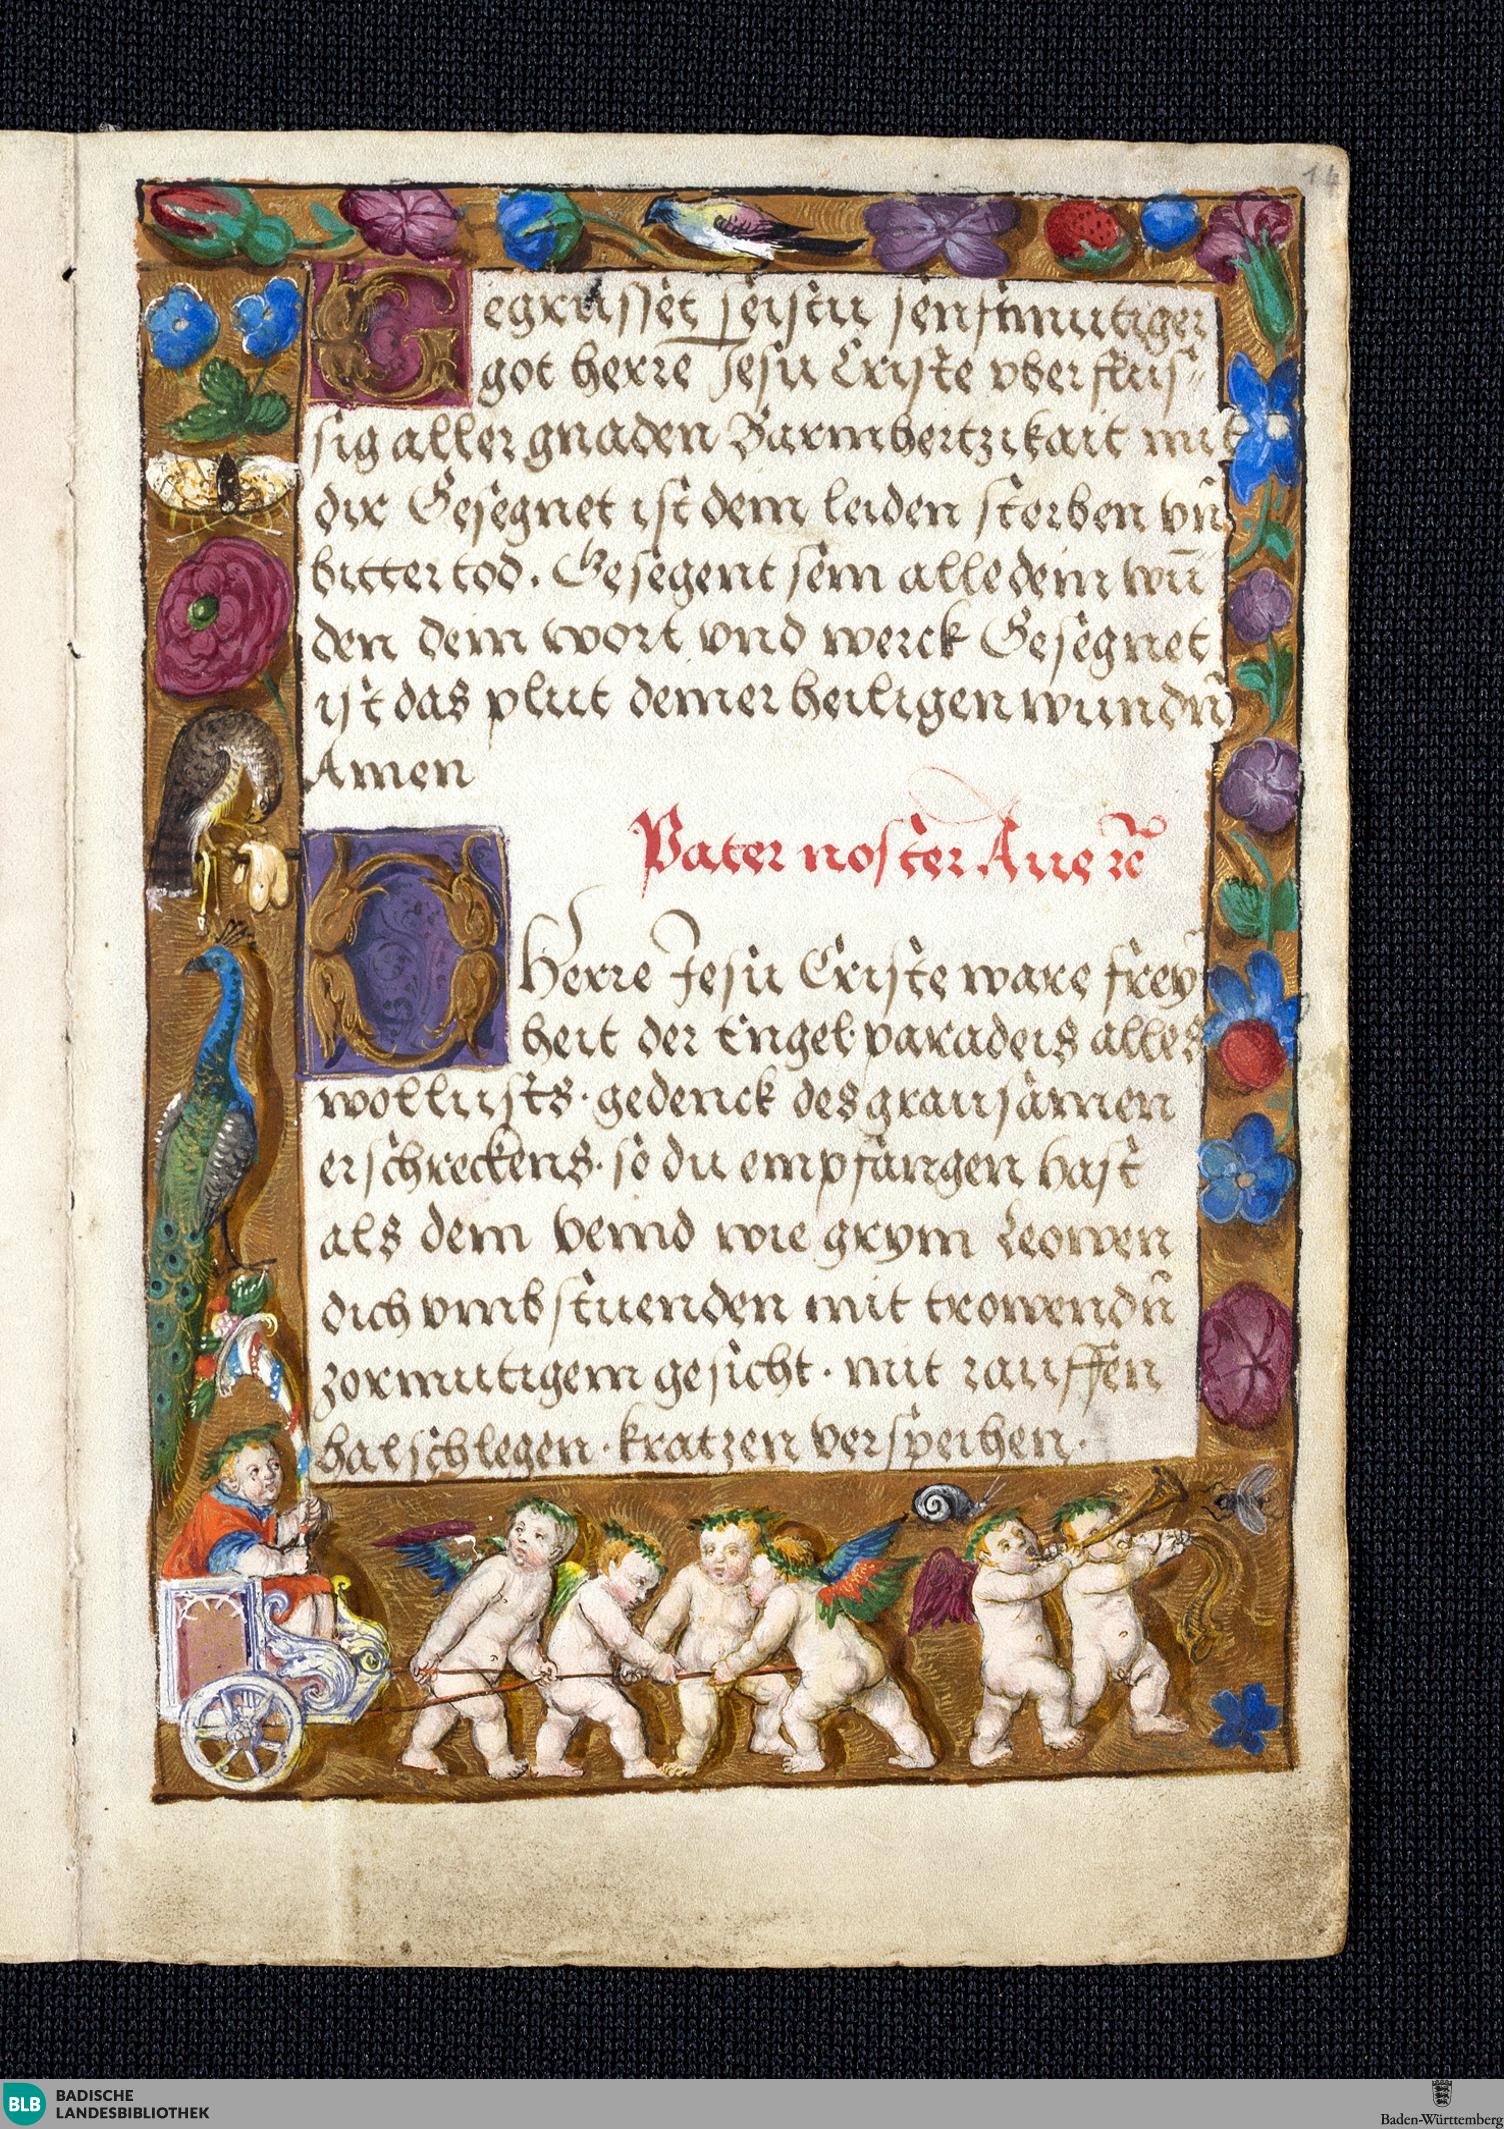 14
Gegrüsset seistu senftmutiger
got herre Jesu Criste vberflüs=
sig aller gnaden Barmhertzikait mit
dir Gesegnet ist dein leiden sterben vn̄
bitter tod. Gesegent sein alle dein wū
den dein wort vnd werck Gesegnet
ist das plut deiner heiligen wundn̄
Amen
Pater noster Aue ꝛc
O Herre Jesu Criste ware frey
heit der Engel· paradeis alles
wollusts· gedenck des grausamen
erschreckens· so du empfangen hast
als dein veind wie grym Leowen
dich vmbstuenden mit trowendn̄
zornmutigem gesicht· mit rauffen
halschlegen· kratzen verspeihen·
BLB BADISCHE
LANDESBIBLIOTHEK
Baden-Württemberg